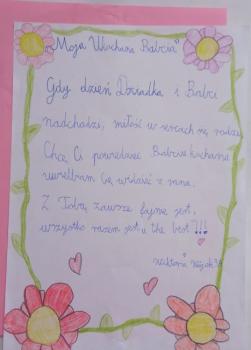 „Moja Ukochana Babcia"
Gdy dzień Dziadka i Babci
nadchodzi, miłość w sercach się rodzi.
Chcę Ci powiedzieć Babciu kochana
uwielbiam Cię widzieć z rana.
Z Tobą zawsze fajnie jest,
wszystko razem jest the best!!!
Wiktoria